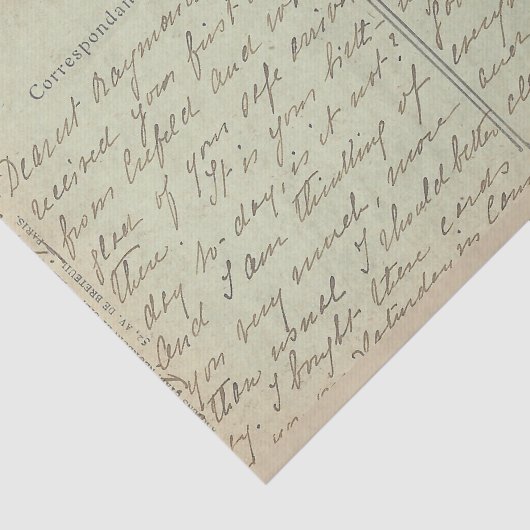 Correspondan
Dearest Raymon
received your first
from Crefeld and w
glad of your safe arriva
there. It is your birth-
day to-day, is it not?
and I am thinking of
you very much, more
than usual. I should better
I bought these cards
Saturday in
everyth
and
52, AV. DE BRETEUIL PARIS